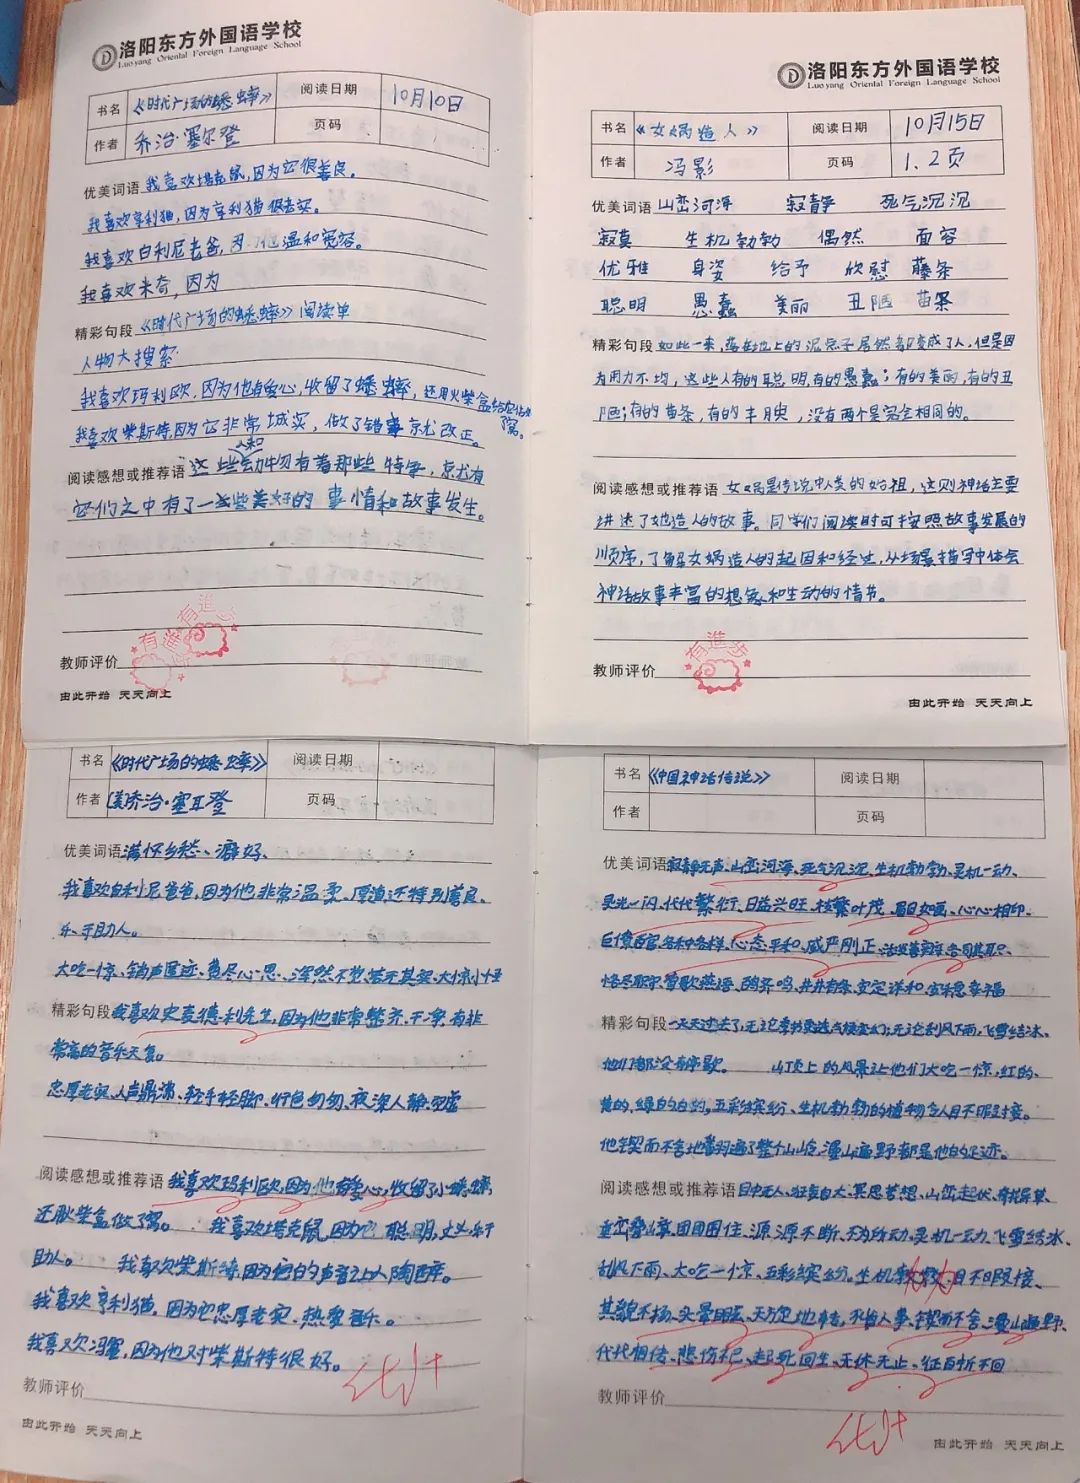 洛阳东方外国语学校
Luoyang Oriental Foreign Language School
书名 《时代广场的蟋蟀》 阅读日期 10月10日
作者 乔治·塞尔登 页码
优美词语 我喜欢塔克鼠,因为它很善良。
我喜欢亨利猫,因为亨利猫很老实。
我喜欢白利尼老爸,因为他温和宽容。
我喜欢米奇,因为
精彩句段 《时代广场的蟋蟀》阅读单
人物大搜索
我喜欢玛利欧,因为他有爱心,收留了蟋蟀,还用火柴盒给它做了窝。
我喜欢柴斯特,因为它非常诚实,做了错事就改正。
阅读感想或推荐语 这些人和动物有着那些特争,京尤有
它们之中有了一些美好的事情和故事发生。
有進步
有進步
教师评价
由此开始 天天向上
洛阳东方外国语学校
Luoyang Oriental Foreign Language School
书名 《女娲造人》 阅读日期 10月15日
作者 冯影 页码 1.2页
优美词语 山峦河海 寂静 死气沉沉
寂寞 生机勃勃 偶然 面容
优雅 身姿 给予 欣慰 藤条
聪明 愚蠢 美丽 丑陋 苗条
精彩句段 如此一来,落在地上的泥点子居然都变成了人,但是因
为用力不均,这些人有的聪明,有的愚蠢;有的美丽,有的丑
陋;有的苗条,有的丰腴,没有两个是完全相同的。
阅读感想或推荐语 女娲是传说中人类的始祖,这则神话主要
讲述了她造人的故事。同学们阅读时可按照故事发展的
顺序,了解女娲造人的起因和经过,从场景描写中体会
神话故事丰富的想象和生动的情节。
有進步
教师评价
由此开始 天天向上
书名 《时代广场的蟋蟀》 阅读日期
作者 [美]乔治·塞耳登 页码
优美词语 满怀乡愁、癖好、
我喜欢白利尼爸爸,因为他非常温柔、厚道还特别善良、
乐于助人。
大吃一惊、销声匿迹、费尽心思、浑然不觉、若无其事、大惊小怪
精彩句段 我喜欢史麦德利先生,因为他非常整齐、干净,有非
常高的音乐天气。
忠厚老实、人声鼎沸、轻手轻脚、行色匆匆、夜深人静、空虚
阅读感想或推荐语 我喜欢玛利欧,因为他有爱心,收留了小蟋蟀,
还耿柴盒做了窝。 我喜欢塔克鼠,因为它聪明,也乐于
助人。 我喜欢柴斯特,因为它的声音让人陶醉。
我喜欢亨利猫,因为它忠厚老实、热爱音乐。
我喜欢冯赛,因为他对柴斯特很好。
教师评价
由此开始 天天向上
书名 《中国神话传说》 阅读日期
作者 页码
优美词语 寂静无声、山峦河海、死气沉沉、生机勃勃、灵机一动、
灵光一闪、代代繁衍、日益兴旺、枝繁叶茂、眉目如画、心心相印、
巨僚百官、各种各样、心态平和、威严刚正、各司其职、
恪尽职守、莺歌燕语、鸥开鸣、井井有条、安定详和、安稳幸福
精彩句段 一天天过去了,无论季节更迭气候变幻;无论刮风下雨,飞雪结冰、
他们都没有停歇。 山顶上的风景让他们大吃一惊,红的、
黄的、绿的白的,五彩缤纷、生机勃勃的植物令人目不暇接。
他锲而不舍地翻遍了整个山岭,漫山遍野都是他的足迹。
阅读感想或推荐语 目中无人、狂妄自大、冥思苦想、山峦起伏、奇花异草、
重峦叠嶂、团团围住、源源不断、无为所动、灵机一动、飞雪结冰、
刮风下雨、大吃一惊、五彩缤纷。生机勃勃、目不暇接、
其貌不扬、头晕眼花、天方地、不省人事、锲而不舍、漫山遍野、
代代相传、悲伤不已、起死回生、无休无止、征百折不回
教师评价
由此开始 天天向上